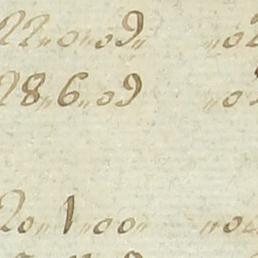 22〃0〃09〃 〃0
28〃6〃09 〃0
20〃1〃00〃 〃0